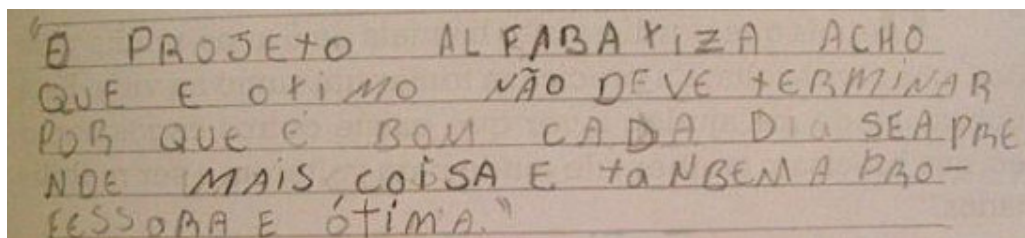 "O PROJETO ALFABATIZA ACHO
QUE E OTIMO NÃO DEVE TERMINAR
POR QUE É BOM CADA DIA SEAPRE
NDE MAIS COISA E TANBEM A PRO-
FESSORA E ÓTIMA."